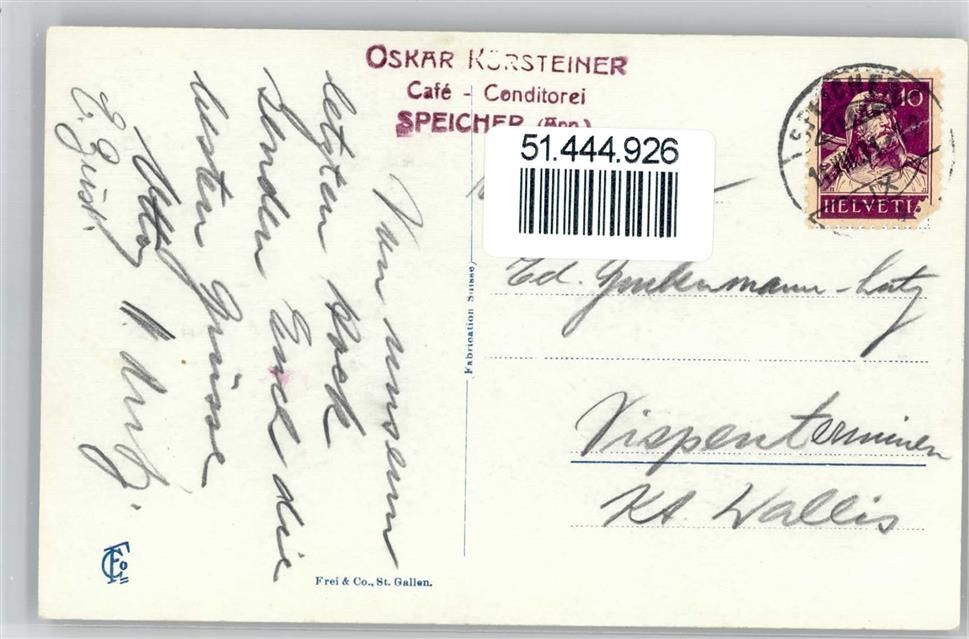 OSKAR KÜRSTEINER
Café - Conditorei
SPEICHER (App.)
51.444.926
10
HELVETIA
SPEICHER
Von unserm
letzten Hock
senden Euch die
besten Grüsse
Otto
Fabrication Suisse
Ed.
Vispenterminen
Kt. Wallis
Frei & Co., St. Gallen.